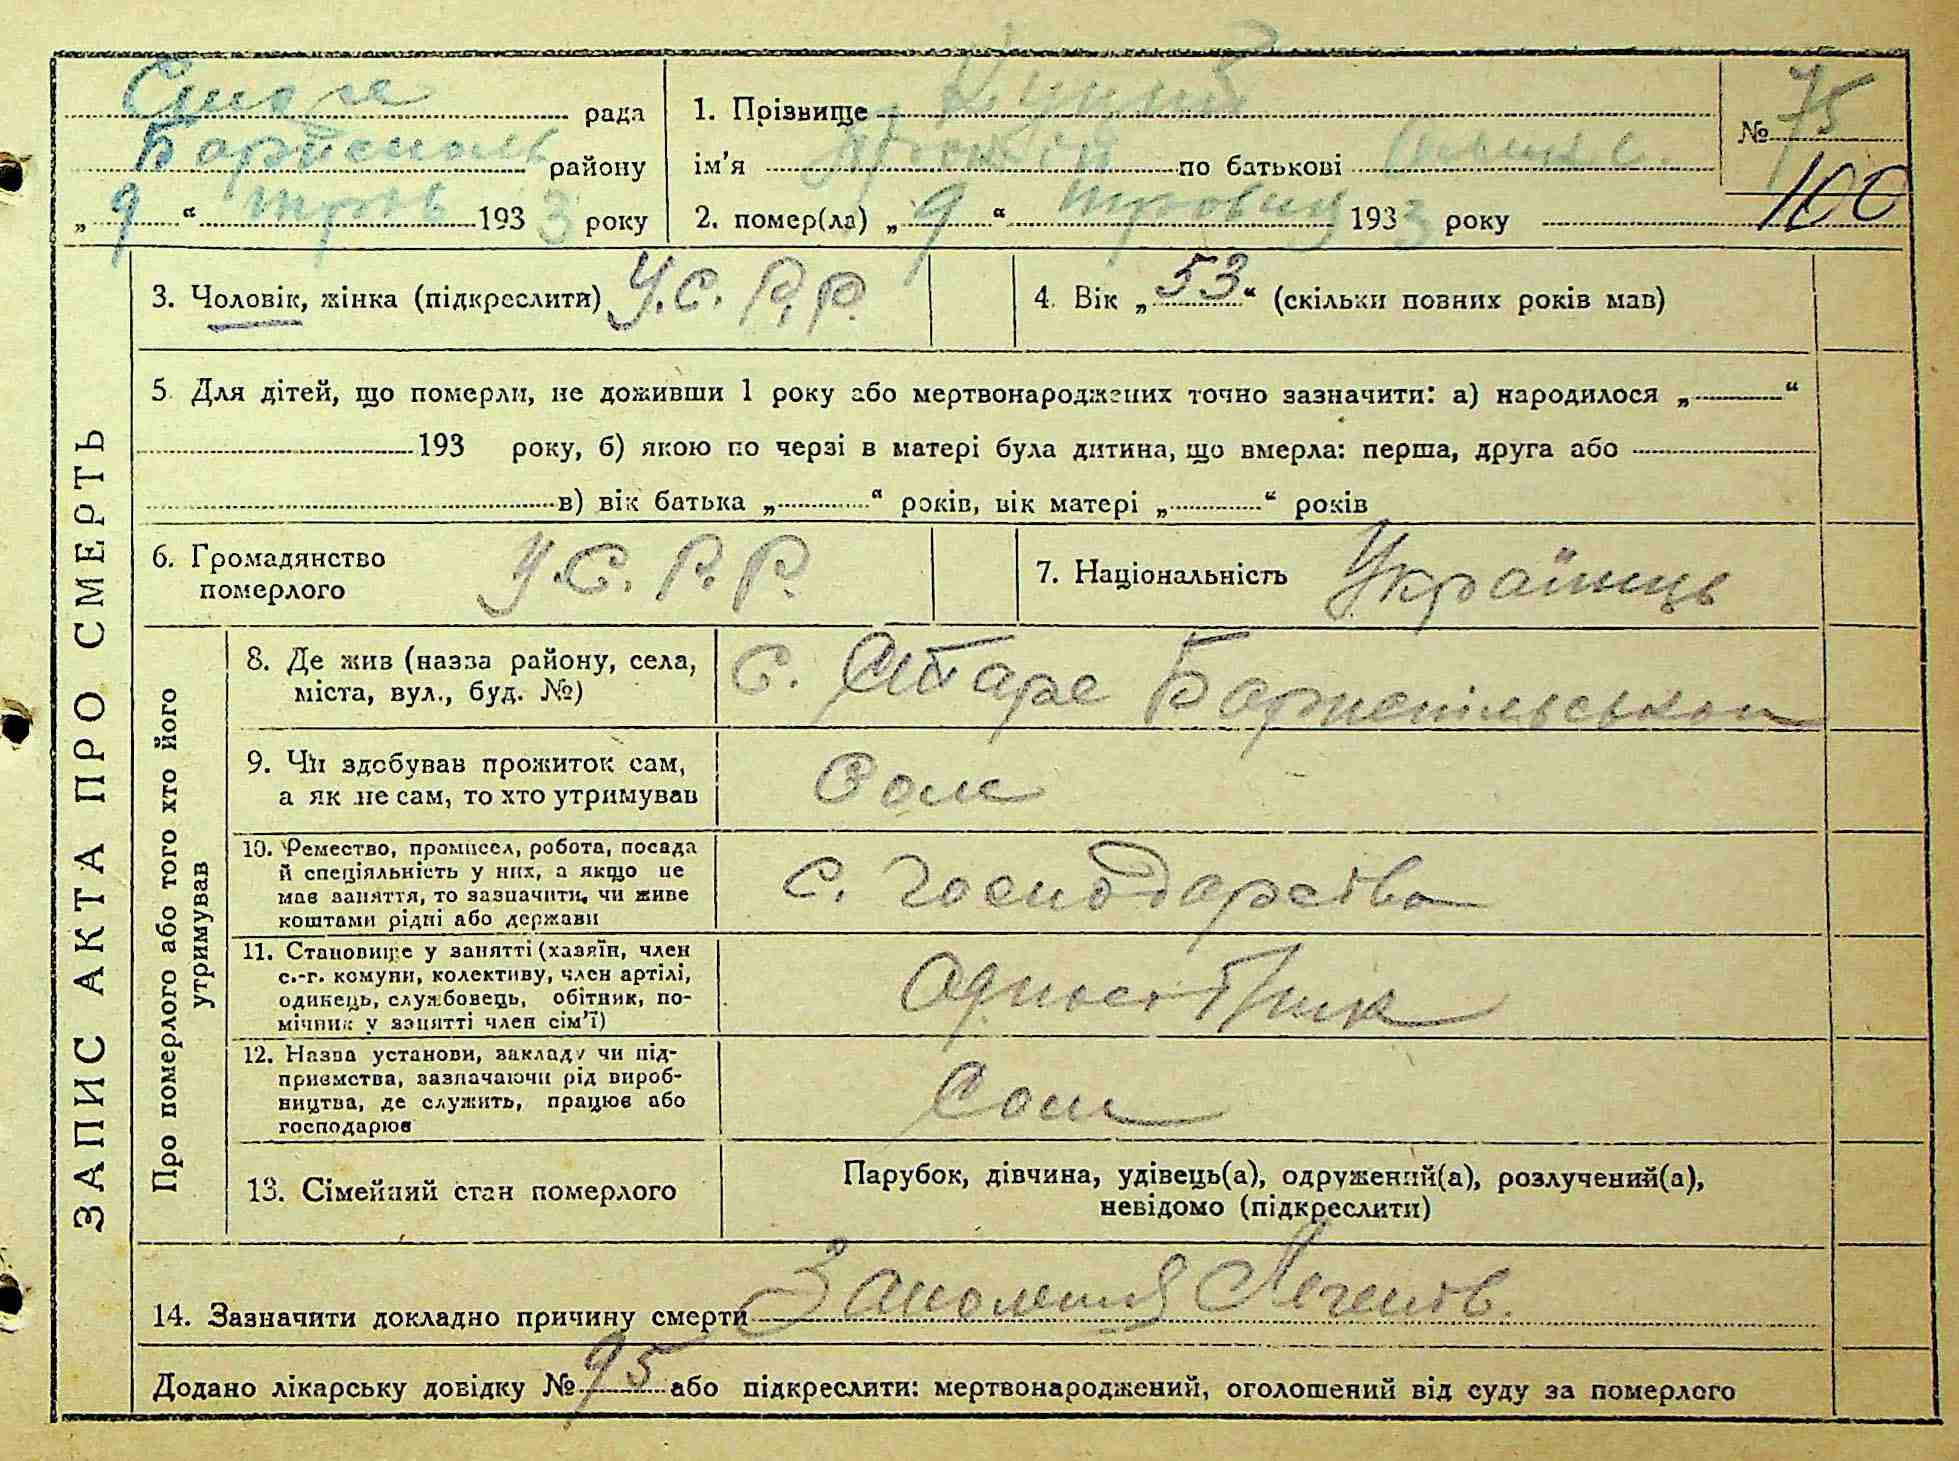 рада
районе 1. Прізвище
Бориспіль району ім'я по батькові
№ 75
100
„ 9 “ трав 1933 року 2. помер(ла) „ 9 “ травня 1933 року
ЗАПИС АКТА ПРО СМЕРТЬ
3. Чоловік, жінка (підкреслити) У.С.Р.Р.
4. Вік „ 53 “ (скільки повних років мав)
5. Для дітей, що померли, не доживши 1 року або мертвонароджених точно зазначити: а) народилося „ “
193 року, б) якою по черзі в матері була дитина, що вмерла: перша, друга або
в) вік батька „ “ років, вік матері „ “ років
6. Громадянство
померлого
У.С.Р.Р.
7. Національність Українць
Про померлого або того хто його
утримував
8. Де жив (назва району, села,
міста, вул., буд. №)
с. Старе
9. Чи здобував прожиток сам,
а як не сам, то хто утримував
Сам
10. Ремество, промисел, робота, посада
й спеціяльність у них, а якщо не
мав заняття, то зазначити, чи живе
коштами рідні або держави
с. господарство
11. Становище у занятті (хазяїн, член
с.-г. комуни, колективу, член артілі,
одинець, службовець, обітник, по-
мічник у занятті член сім'ї)
12. Назва установи, закладу чи під-
приємства, зазначаючи рід вироб-
ництва, де служить, працює або
господарює
Сам
13. Сімейний стан померлого
Парубок, дівчина, удівець(а), одружений(а), розлучений(а),
невідомо (підкреслити)
14. Зазначити докладно причину смерти
Додано лікарську довідку № 95 або підкреслити: мертвонароджений, оголошений від суду за померлого